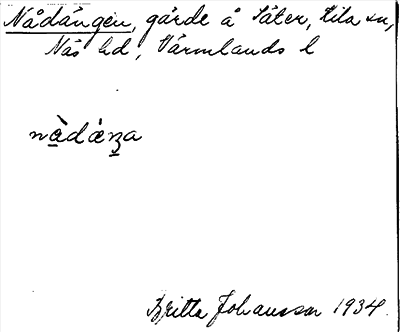 Nådängen, gärde å Säter, Kila sn,
Näs hd, Värmlands l
nàdáŋa
Britta Johansson 1934.